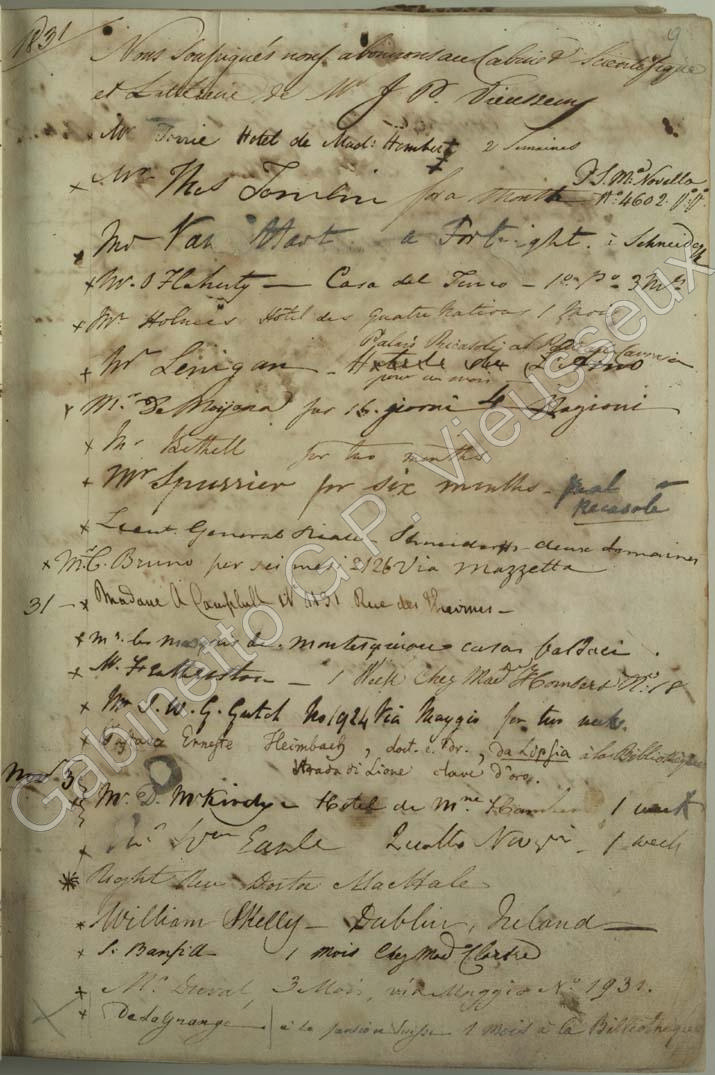 1831
9
Nous Sousignés nous abonnons au Cabinet Scientifique
et Littéraire de Mr J. P. Vieusseux
Mr Hotel de Mad: Hombert 2 Semaines
Mr Thos Tomlin for a Month P. S. Ma Novella
No 4602. Po Po
Mr Van a Fortnight. Schneider
Mr O'Flaherty — Casa del 1o Po 3 Ms
Mr Holmes Hôtel des quatre Nations 1 Mois
Palais Ricasoli al
Mr Lenigan
pour un mois
Mr De Moyana per 15 giorni 4 Nazioni
Mr Bethell for two months
Mr Spurrier for six months
Ricasoli
Lieut. General Schneiderffs deux Semaines
Mr C. Bruno per sei mesi 2126 Via Mazzetta
31 — Madame A Campbell 1131 Rue des
Mr le marquis de montesquiou casa baldaci.
Mr Featherston — 1 Week Chez Made Hombert No 18
Mr S. W. G. Gutch No 1924 Via Maggio for two weeks.
Gustave Erneste Heimbach, doct. e. Dr., da Lipsia à la Bibliothèque
Strada di Lione clave d'oro.
Nov. 3 Mr D. McKirdy — Hotel de Mme Humbert 1 week
Wm Earle Quattro Nazioni 1 week
Right Rev Doctor MacHale
William Skelly — Dublin, Ireland —
S. Banfill 1 mois Chez Mad Clarke
Mr Duval, 3 Mois, via Maggio No 1931.
De Lagrange à la pension Suisse 1 mois à la Bibliothèque
Gabinetto G.P. Vieusseux